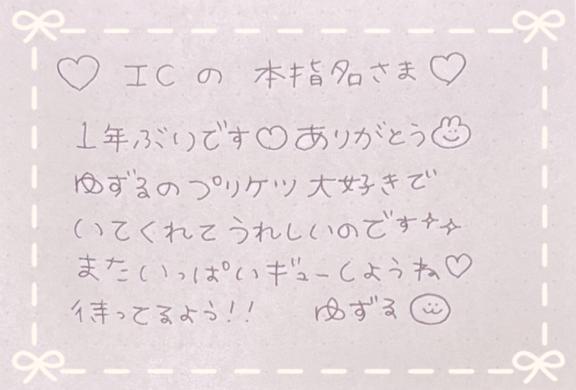 ♡ ICの 本指名さま ♡
1年ぶりです♡ありがとう
ゆずるのプリケツ大好きで
いてくれてうれしいのです✧✧
またいっぱいギューしようね♡
待ってるよう!! ゆずる